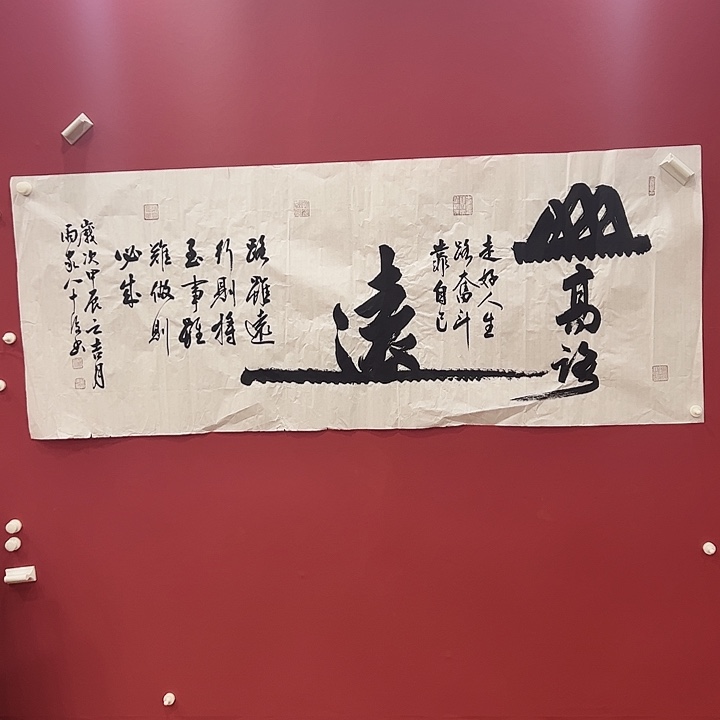 山高路
走好人生
路奋斗
靠自己
遠
路雖遠
行則將
至事雖
難做則
必成
歲次甲辰之吉月
雨八十书